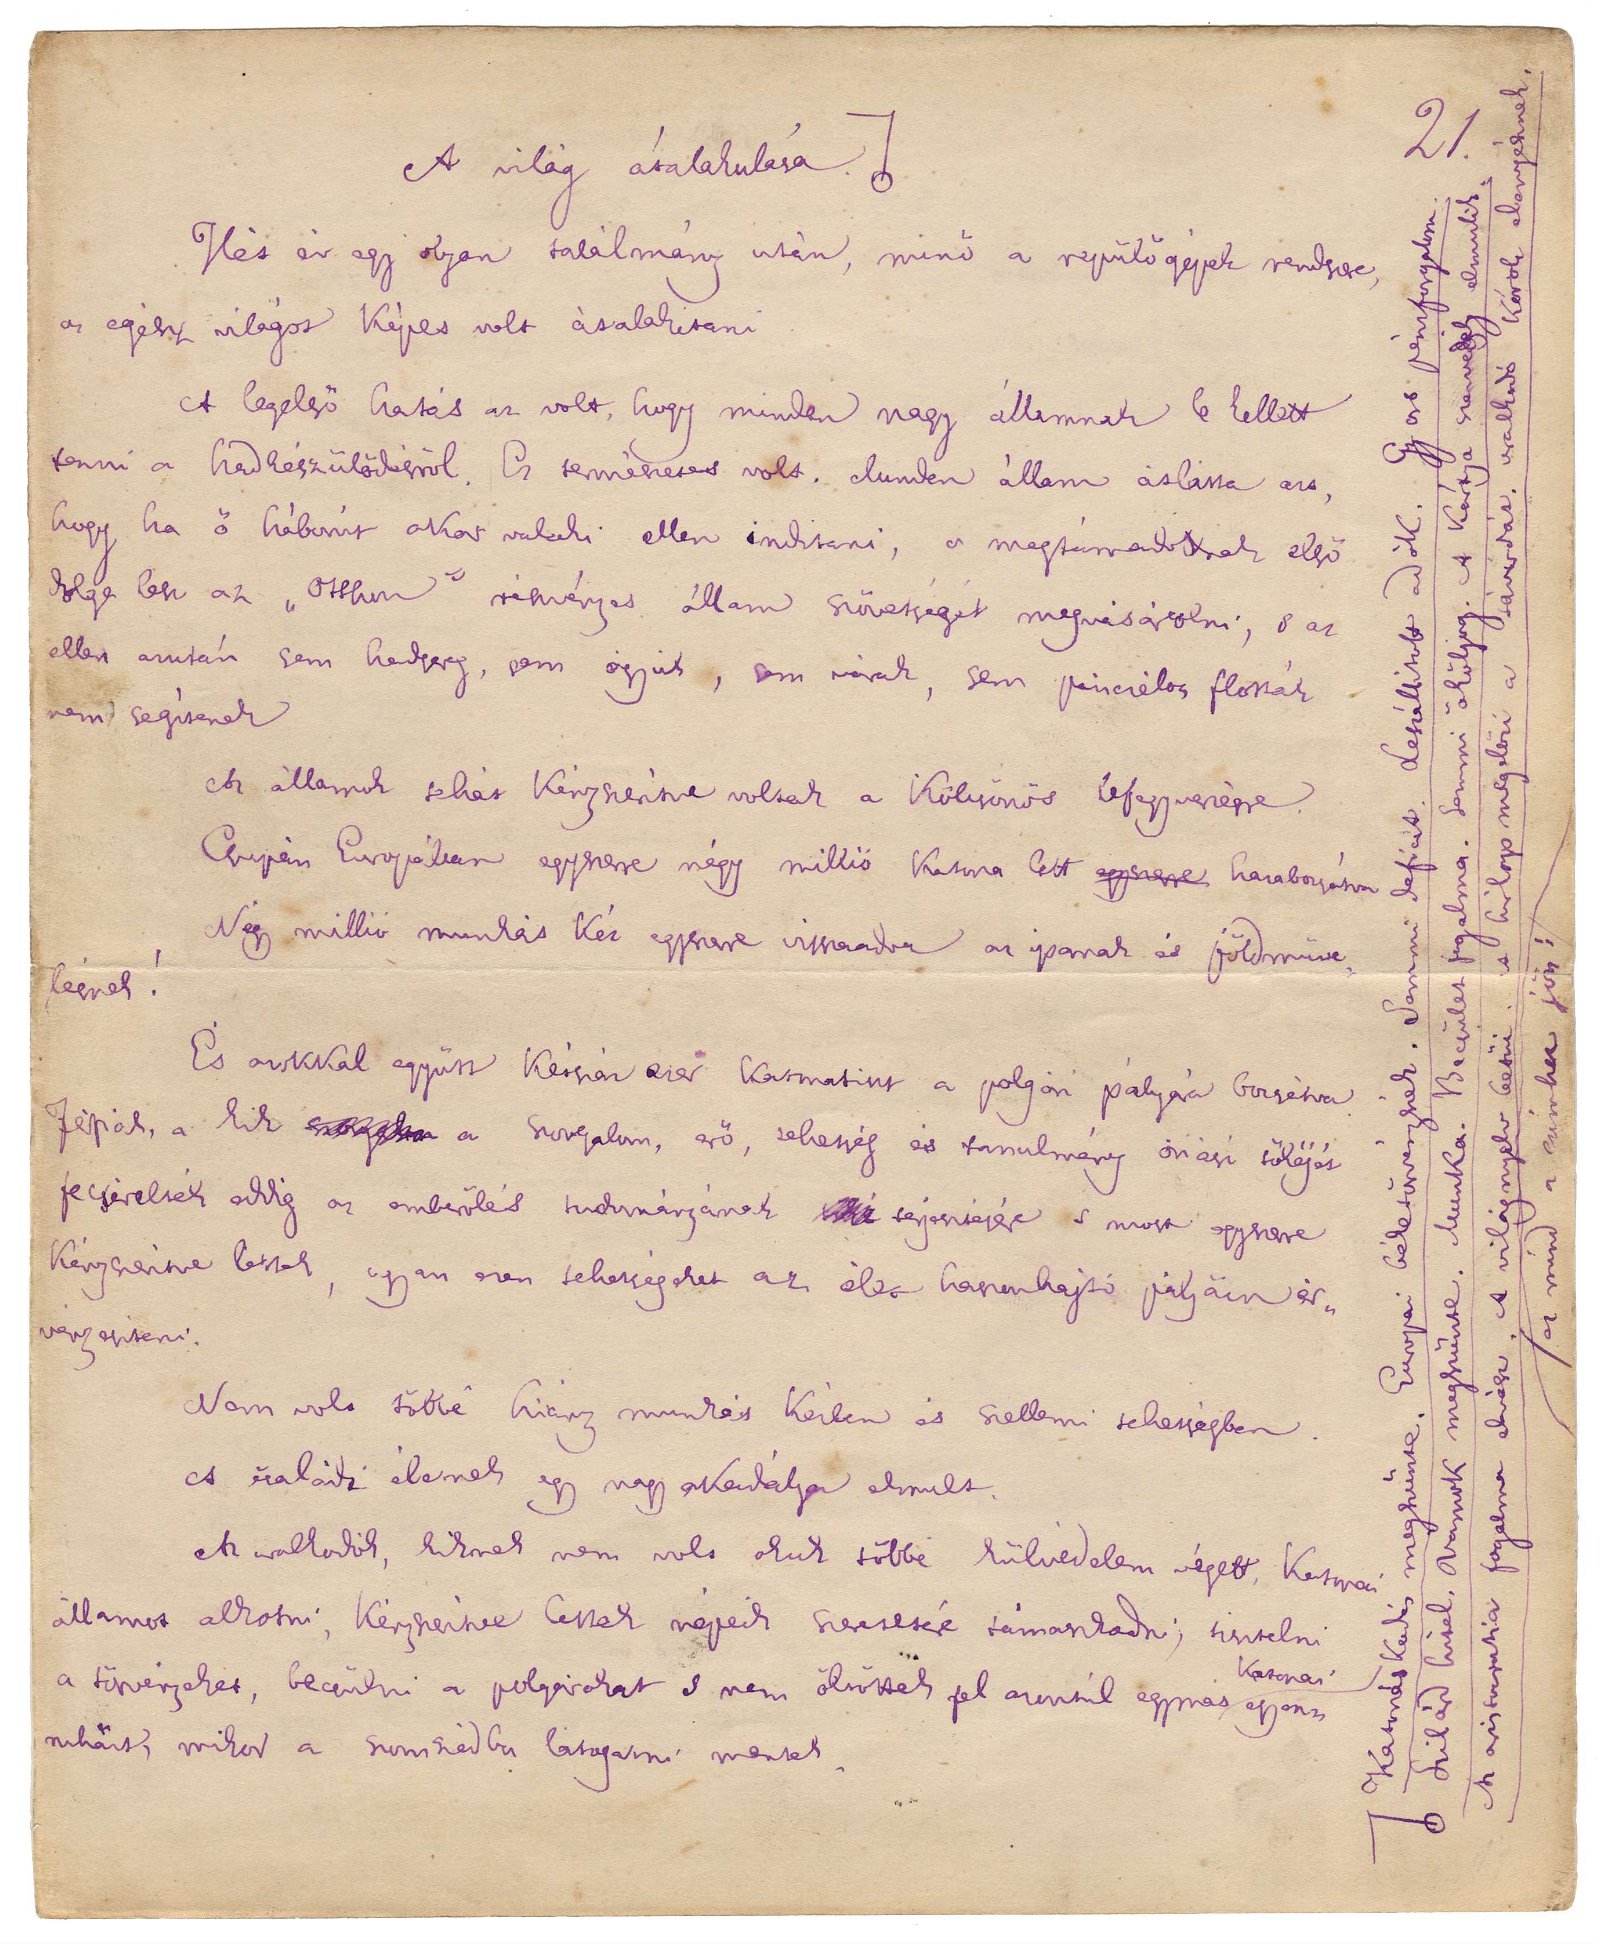 21.
A világ átalakulása.
Hét év egy olyan találmány után, minő a repülőgépek rendszere,
az egész világot képes volt átalakitani
A legelső hatás az volt, hogy minden nagy államnak le kellett
tenni a hadkészülődésről. Ez természetes volt. Minden állam átlátta azt,
hogy ha ő háborút akar valaki ellen inditani, a megtámadottnak első
dolga lesz az „Otthon” részvényes állam szövetségét megvásárolni, s az
ellen azután sem hadsereg, sem ágyúk, sem várak, sem páncélos flották
nem segitenek
Az államok tehát kényszerítve voltak a kölcsönös lefegyverzésre.
Csupán Európában egyszerre négy millió katona lett egyszerre hazabocsátva
Négy millió munkás kéz egyszerre visszaadva az iparnak és földmüve„
lésnek!
És azokkal együtt kétszáz ezer katonatiszt a polgári pályára bocsátva.
Férfiak, a kik a szorgalom, erő, tehetség és tanulmány óriási tőkéjét
fecsérelték eddig az emberölés tudományának terjesztésére s most egyszerre
kényszerítve lettek, ugyan ezen tehetségeket az élet haszonhajtó pályáin ér„
vényesiteni.
Nem volt többé hiány munkás kézben és szellemi tehetségben.
A családi életnek egy nagy akadálya elmult.
Az uralkodók, kiknek nem volt okuk többé külvédelem végett, katonai
államot alkotni, kényszerítve lettek népeik szeretetére támaszkodni; tisztelni
a törvényeket, becsülni a polgárokat s nem öltöttek fel azontúl egymás katonai egyen„
ruháit, mikor a szomszédba látogatni mentek.
Katonáskodás megszünte. Európai béketörvényszék. Semmi deficit. Leszállitott adók. Gyors pénzforgalom.
Szilárd hitel. Vámok megszünte. Munka. Becsület fogalma. Semmi ököljog. A kártya szenvedély elmulik.
Az aristocratia fogalma elvész. A világnyelv betüi. s hirlap megelőzi a távirdát. uralkodó körök elenyésznek.
az mind a cimhez jön!